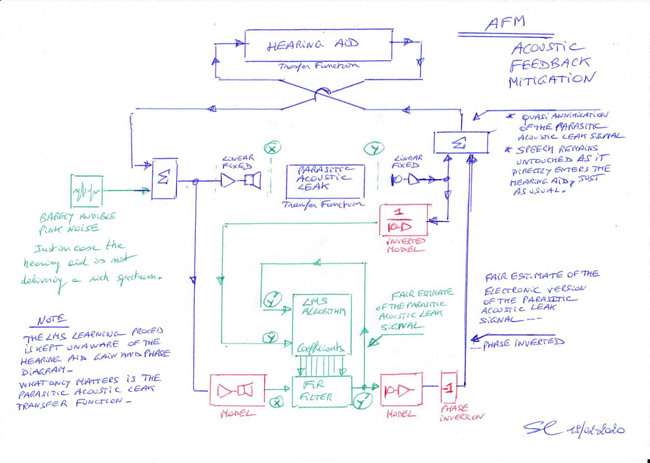 AFM
ACOUSTIC
FEEDBACK
MITIGATION
HEARING AID
Transfer Function
* QUASI ANNIHILATION
OF THE PARASITIC
ACOUSTIC LEAK SIGNAL
* SPEECH REMAINS
UNTOUCHED AS IT
DIRECTLY ENTERS THE
HEARING AID, JUST
AS USUAL.
Σ
Σ
LINEAR
FIXED
X
PARASITIC
ACOUSTIC
LEAK
Transfer Function
Y
LINEAR
FIXED
BARELY AUDIBLE
PINK NOISE
Just in case the
hearing aid is not
delivering a rich spectrum.
1
INVERTED
MODEL
Y'
Y
LMS
ALGORITHM
Coefficients
FAIR ESTIMATE
OF THE PARASITIC
ACOUSTIC LEAK
SIGNAL
FAIR ESTIMATE OF THE
ELECTRONIC VERSION
OF THE PARASITIC
ACOUSTIC LEAK
SIGNAL ---
--- PHASE INVERTED
NOTE
THE LMS LEARNING PROCESS
IS KEPT UNAWARE OF THE
HEARING AID GAIN AND PHASE
DIAGRAM.
WHAT ONLY MATTERS IS THE
PARASITIC ACOUSTIC LEAK
TRANSFER FUNCTION.
MODEL
X
FIR
FILTER
Y'
MODEL
-1
PHASE
INVERSION